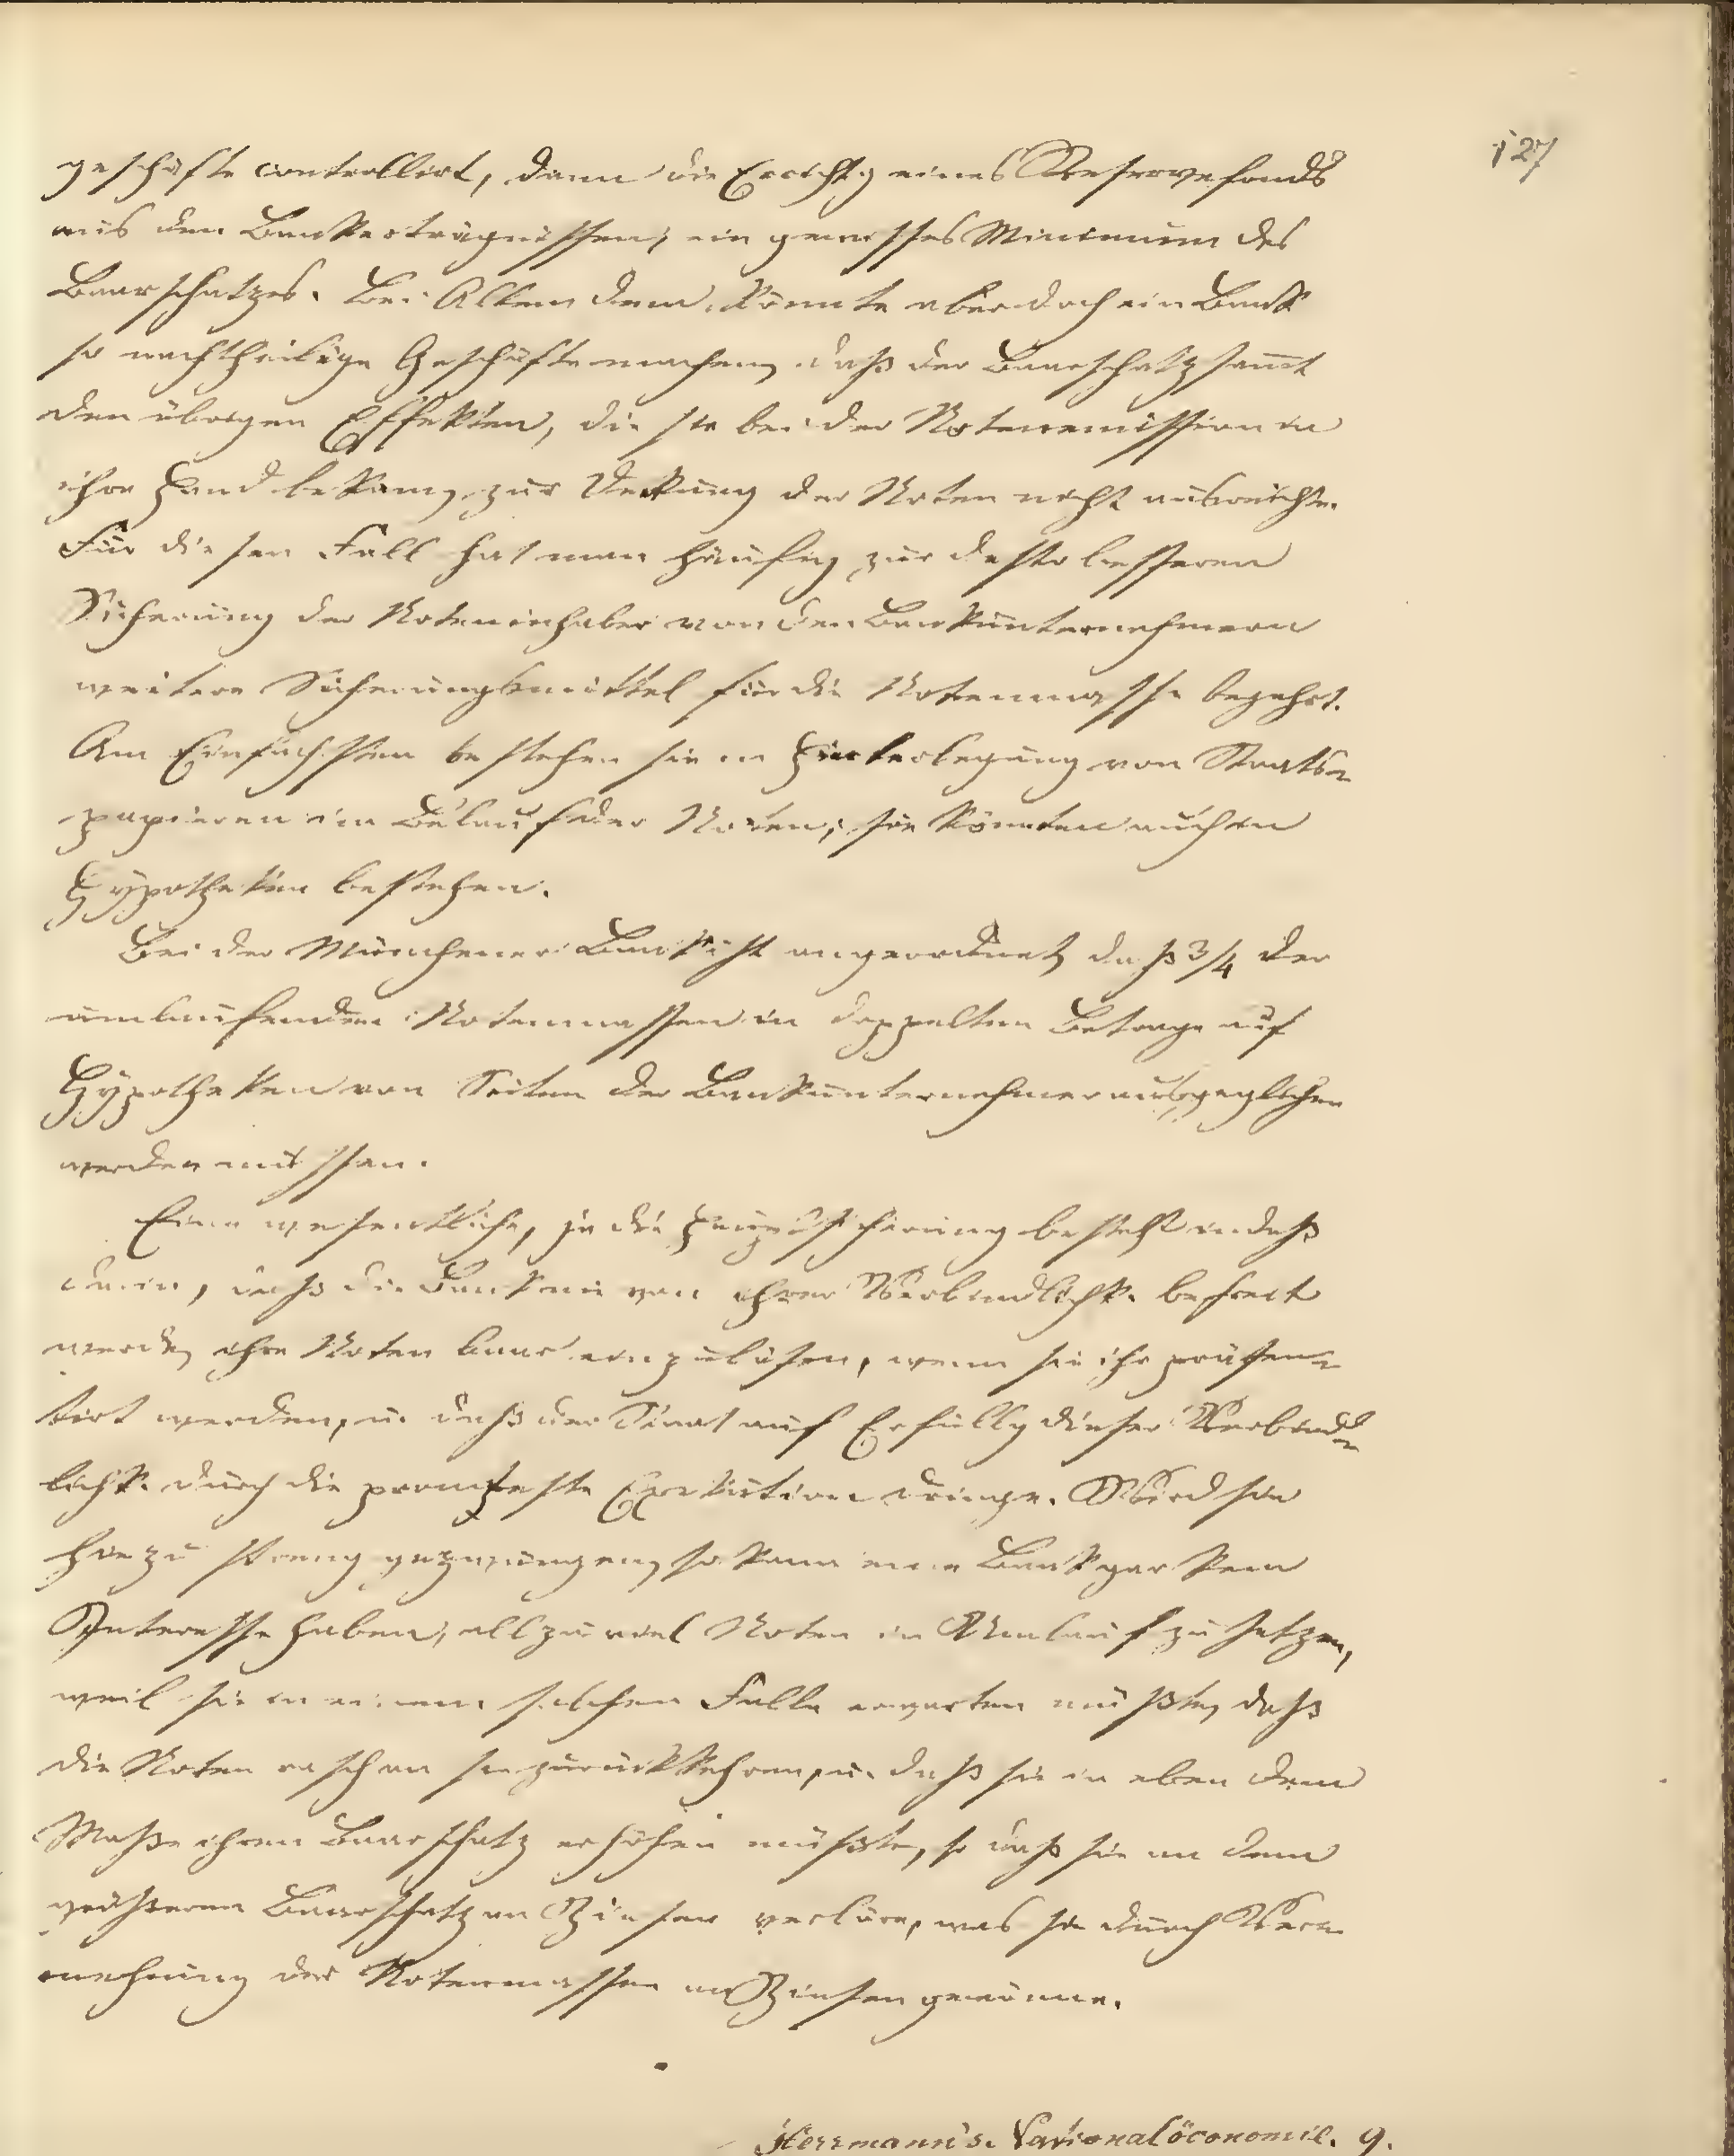 127
geschäfte controllirt, dann die Errichtg eines Reservefonds
aus den Bankerträgnissen, ein gewisses Minimum des
Baarschatzes. Bei Allem dem könnte aber doch ein Bank
so nachtheilige Geschäfte machen, daß der Baarschatz sam̅t
den übrigen Effekten, die sie bei der Notenemission in
ihre Hand bekam, zur Deckung der Noten nicht ausreichte.
Für diesen Fall hat man häufig zur desto besseren
Sicherung der Noteninhaber von den Bankunternehmern
weitere Sicherungsmittel für die Notenmasse begehrt.
Am Einfachsten bestehen sie in Hinterlegung von Staats-
papieren im Belauf der Noten; sie könnten auch in
Hypotheken bestehen.
Bei der Münchener Bank ist angeordnet, daß 3/4 der
umlaufenden Notenmassen in doppelten Betrage auf
Hypotheken von Seiten der Bankunternehmer ausgeglichen
werden müssen.
Eine wesentliche, ja die Hauptsicherung besteht indeß
darin, daß die Bank nie von ihrer Verbindlichk. befreit
werde, ihre Noten baar einzulösen, wenn sie ihr präsen-
tirt werden, u. daß der Staat auf Erfüllg dieser Verbind-
lichk. durch die prompteste Exekution dringe. Wird sie
hiezu streng gezwungen, so kann eine Bank gar kein
Interesse haben, allzuviel Noten in Umlauf zu setzen,
weil sie in einem solchen Falle erwarten müßte, daß
die Noten rasch an sie zurückkehren, u. daß sie in eben dem
Maße ihren Baarschatz erhöhen müßte, so daß sie an dem
größeren Baarschatz an Zinsen verlöre, was sie durch Ver-
mehrung der Notenmassen an Zinsen gewänne.
Herrmann's. Nationalöconomie. 9.